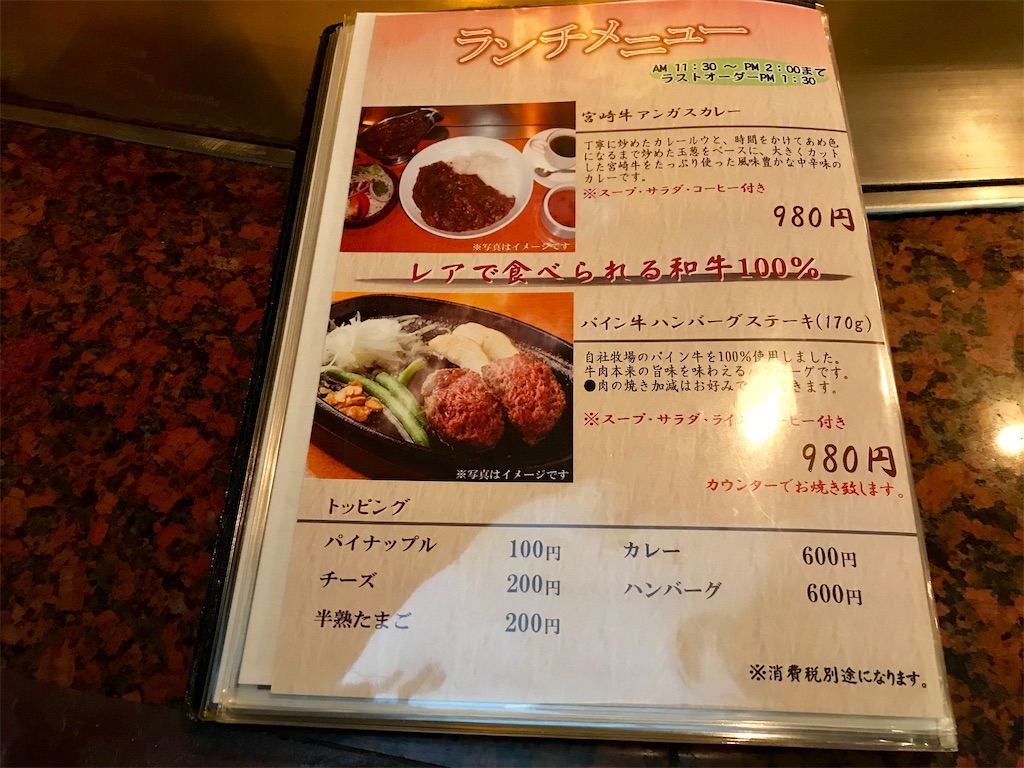 ランチメニュー
AM 11:30 ～ PM 2:00まで
ラストオーダーPM 1:30
宮崎牛アンガスカレー
丁寧に炒めたカレールウと、時間をかけてあめ色
になるまで炒めた玉葱をベースに、大きくカット
した宮崎牛をたっぷり使った風味豊かな中辛味の
カレーです。
※スープ・サラダ・コーヒー付き
980円
※写真はイメージです
レアで食べられる和牛100%
パイン牛 ハンバーグステーキ(170g)
自社牧場のパイン牛を100%使用しました。
牛肉本来の旨味を味わえる バーグです。
●肉の焼き加減はお好みで きます。
※スープ・サラダ・ライ ヒー付き
980円
※写真はイメージです
カウンターでお焼き致します。
トッピング
パイナップル 100円 カレー 600円
チーズ 200円 ハンバーグ 600円
半熟たまご 200円
※消費税別途になります。